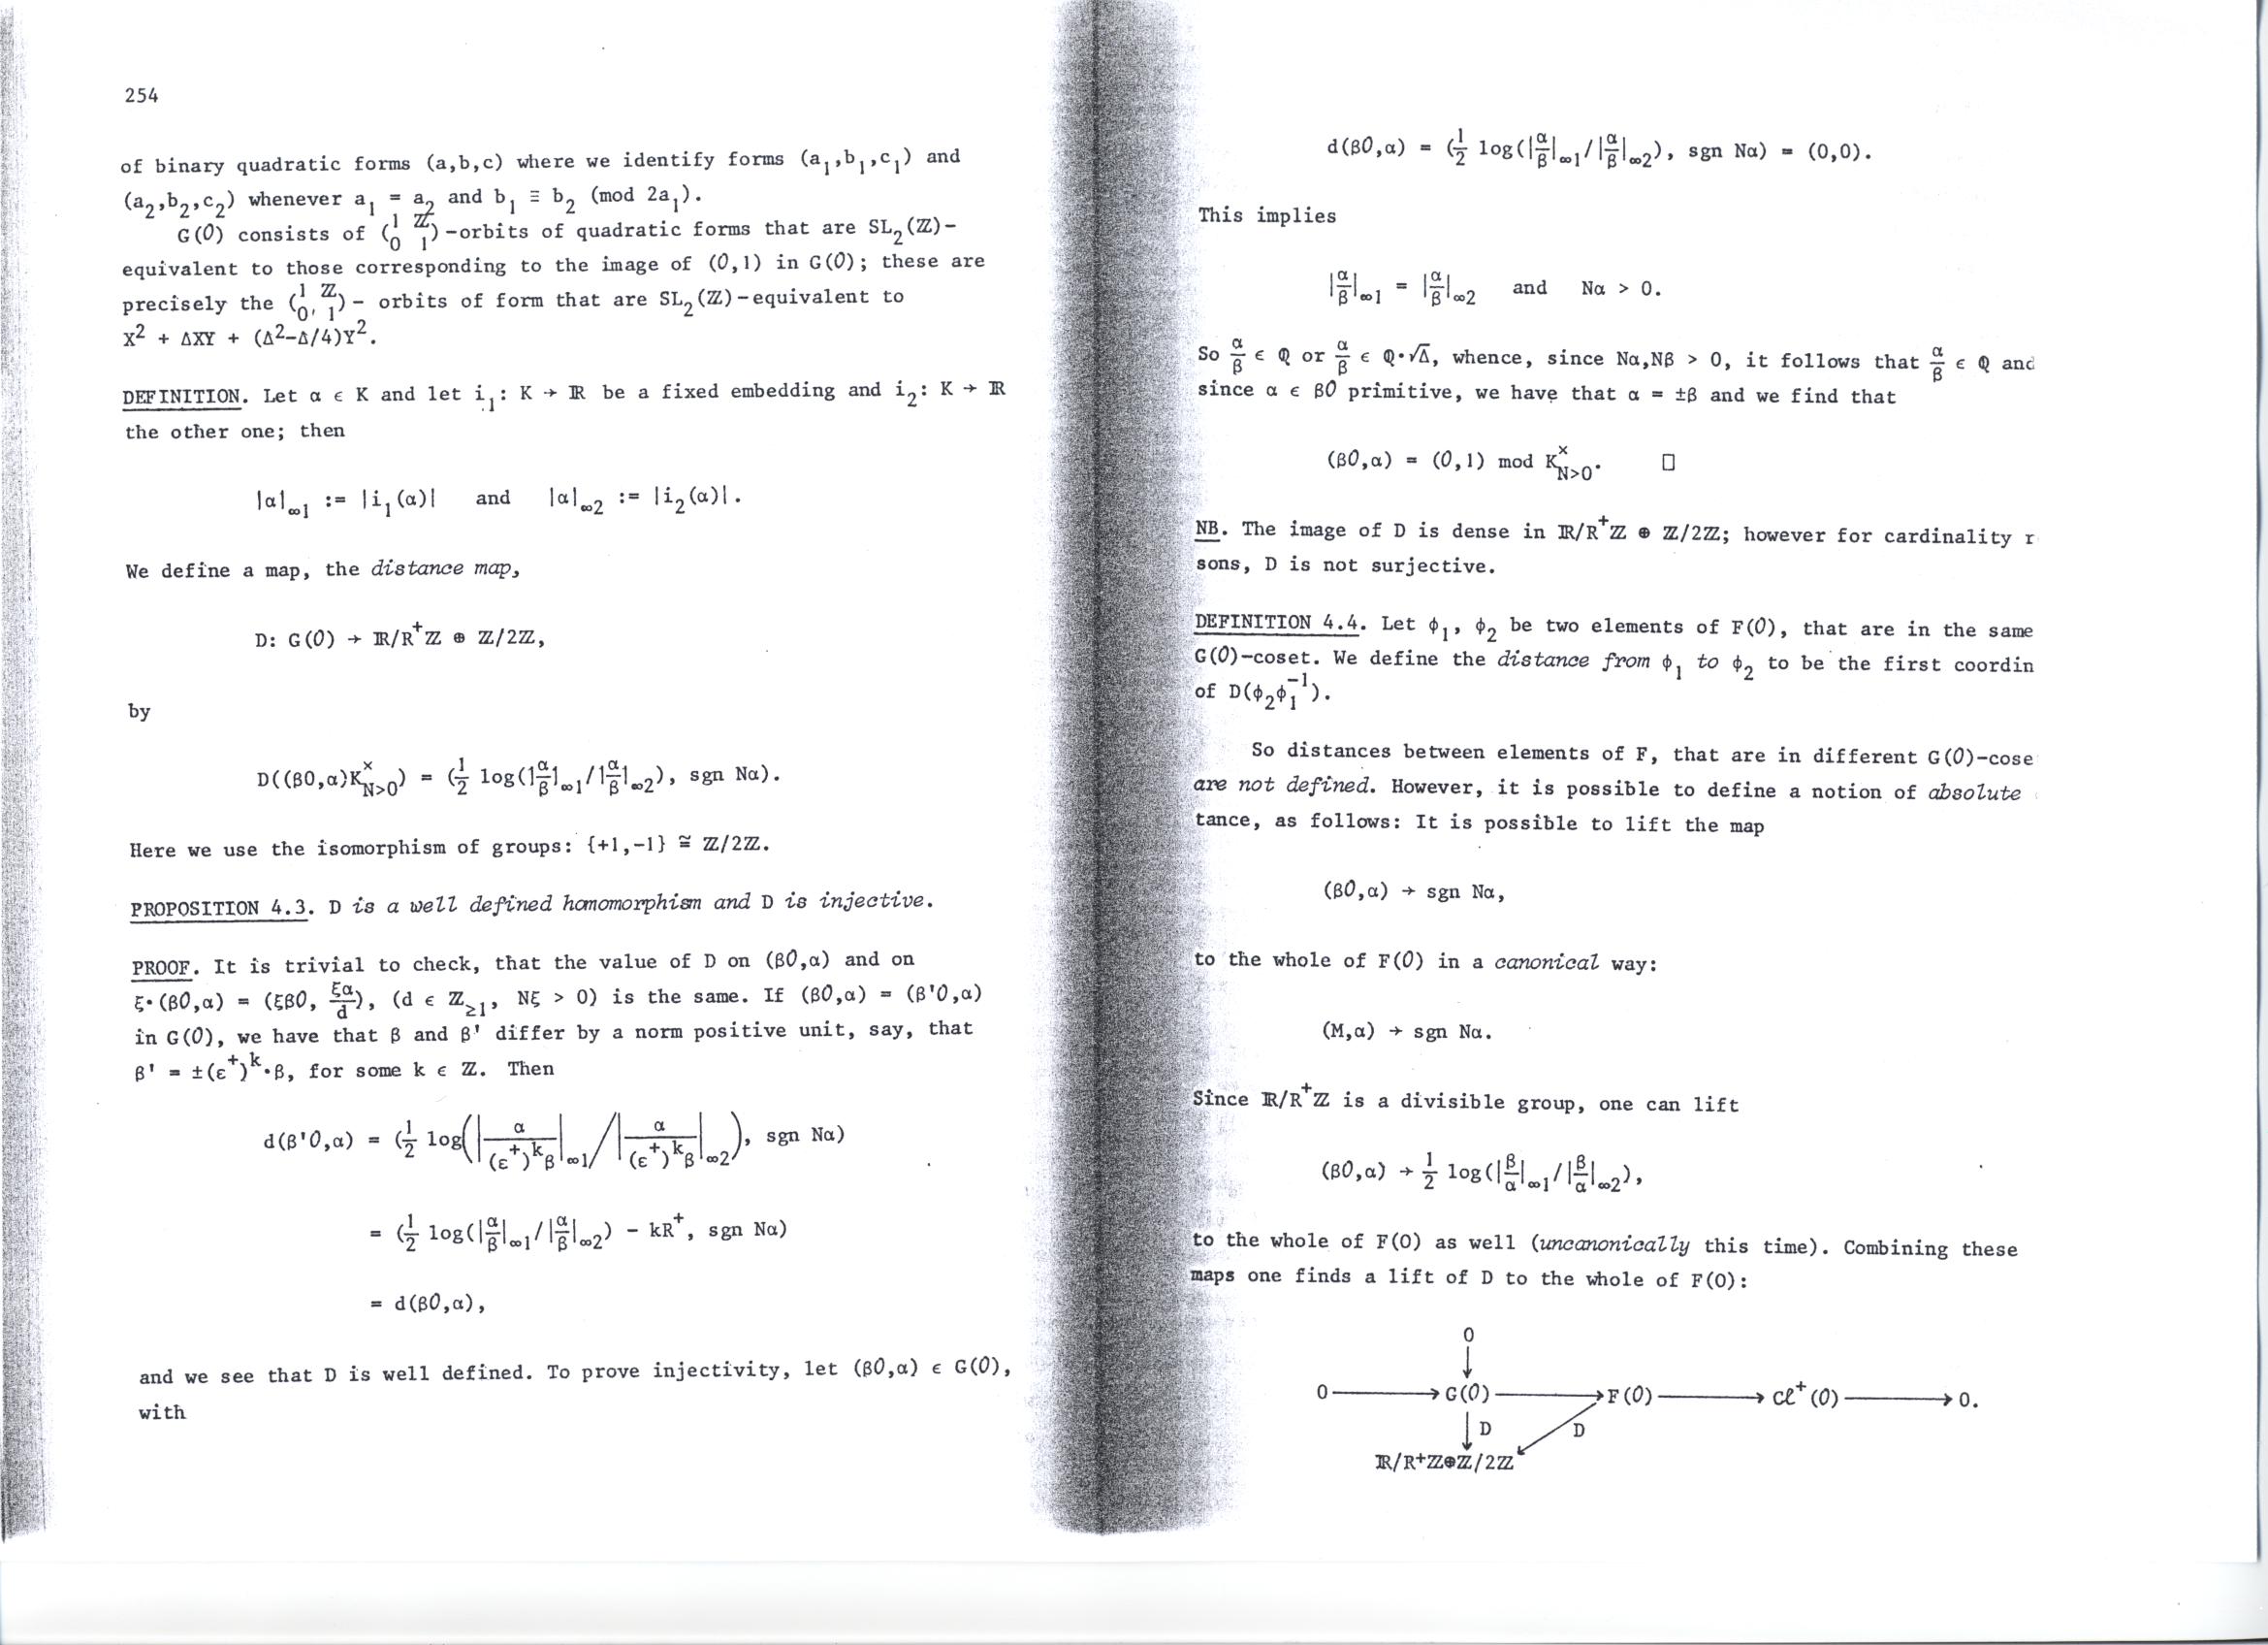 254
of binary quadratic forms (a,b,c) where we identify forms (a₁,b₁,c₁) and
(a₂,b₂,c₂) whenever a₁ = a₂ and b₁ ≡ b₂ (mod 2a₁).
G(O) consists of (1 ℤ / 0 1)-orbits of quadratic forms that are SL₂(ℤ)-
equivalent to those corresponding to the image of (O,1) in G(O); these are
precisely the (1 ℤ / 0 1)- orbits of form that are SL₂(ℤ)-equivalent to
X² + ΔXY + (Δ²-Δ/4)Y².
DEFINITION. Let α ϵ K and let i₁: K → ℝ be a fixed embedding and i₂: K → ℝ
the other one; then
|α|∞1 := |i₁(α)| and |α|∞2 := |i₂(α)|.
We define a map, the distance map,
D: G(O) → ℝ/R⁺ℤ ⊕ ℤ/2ℤ,
by
D((βO,α)K^×_{N>0}) = (½ log(1α/β1∞1/1α/β1∞2), sgn Nα).
Here we use the isomorphism of groups: {+1,-1} ≅ ℤ/2ℤ.
PROPOSITION 4.3. D is a well defined homomorphism and D is injective.
PROOF. It is trivial to check, that the value of D on (βO,α) and on
ξ·(βO,α) = (ξβO, ξα/d), (d ϵ ℤ≥1, Nξ > 0) is the same. If (βO,α) = (β'O,α)
in G(O), we have that β and β' differ by a norm positive unit, say, that
β' = ±(ε⁺)ᵏ·β, for some k ϵ ℤ. Then
d(β'O,α) = (½ log(|α/(ε⁺)ᵏβ|∞1/|α/(ε⁺)ᵏβ|∞2), sgn Nα)
= (½ log(|α/β|∞1/|α/β|∞2) - kR⁺, sgn Nα)
= d(βO,α),
and we see that D is well defined. To prove injectivity, let (βO,α) ϵ G(O),
with
d(βO,α) = (½ log(|α/β|∞1/|α/β|∞2), sgn Nα) = (0,0).
This implies
|α/β|∞1 = |α/β|∞2 and Nα > 0.
So α/β ϵ ℚ or α/β ϵ ℚ·√Δ, whence, since Nα,Nβ > 0, it follows that α/β ϵ ℚ and
since α ϵ βO primitive, we have that α = ±β and we find that
(βO,α) = (O,1) mod K^×_{N>0}. □
NB. The image of D is dense in ℝ/R⁺ℤ ⊕ ℤ/2ℤ; however for cardinality r
sons, D is not surjective.
DEFINITION 4.4. Let ϕ₁, ϕ₂ be two elements of F(O), that are in the same
G(O)-coset. We define the distance from ϕ₁ to ϕ₂ to be the first coordin
of D(ϕ₂ϕ₁⁻¹).
So distances between elements of F, that are in different G(O)-cose
are not defined. However, it is possible to define a notion of absolute
tance, as follows: It is possible to lift the map
(βO,α) → sgn Nα,
to the whole of F(O) in a canonical way:
(M,α) → sgn Nα.
Since ℝ/R⁺ℤ is a divisible group, one can lift
(βO,α) → ½ log(|β/α|∞1/|β/α|∞2),
to the whole of F(O) as well (uncanonically this time). Combining these
maps one finds a lift of D to the whole of F(O):
0
↓
0 → G(O) → F(O) → Cℓ⁺(O) → 0.
↓ D D
ℝ/R⁺ℤ⊕ℤ/2ℤ